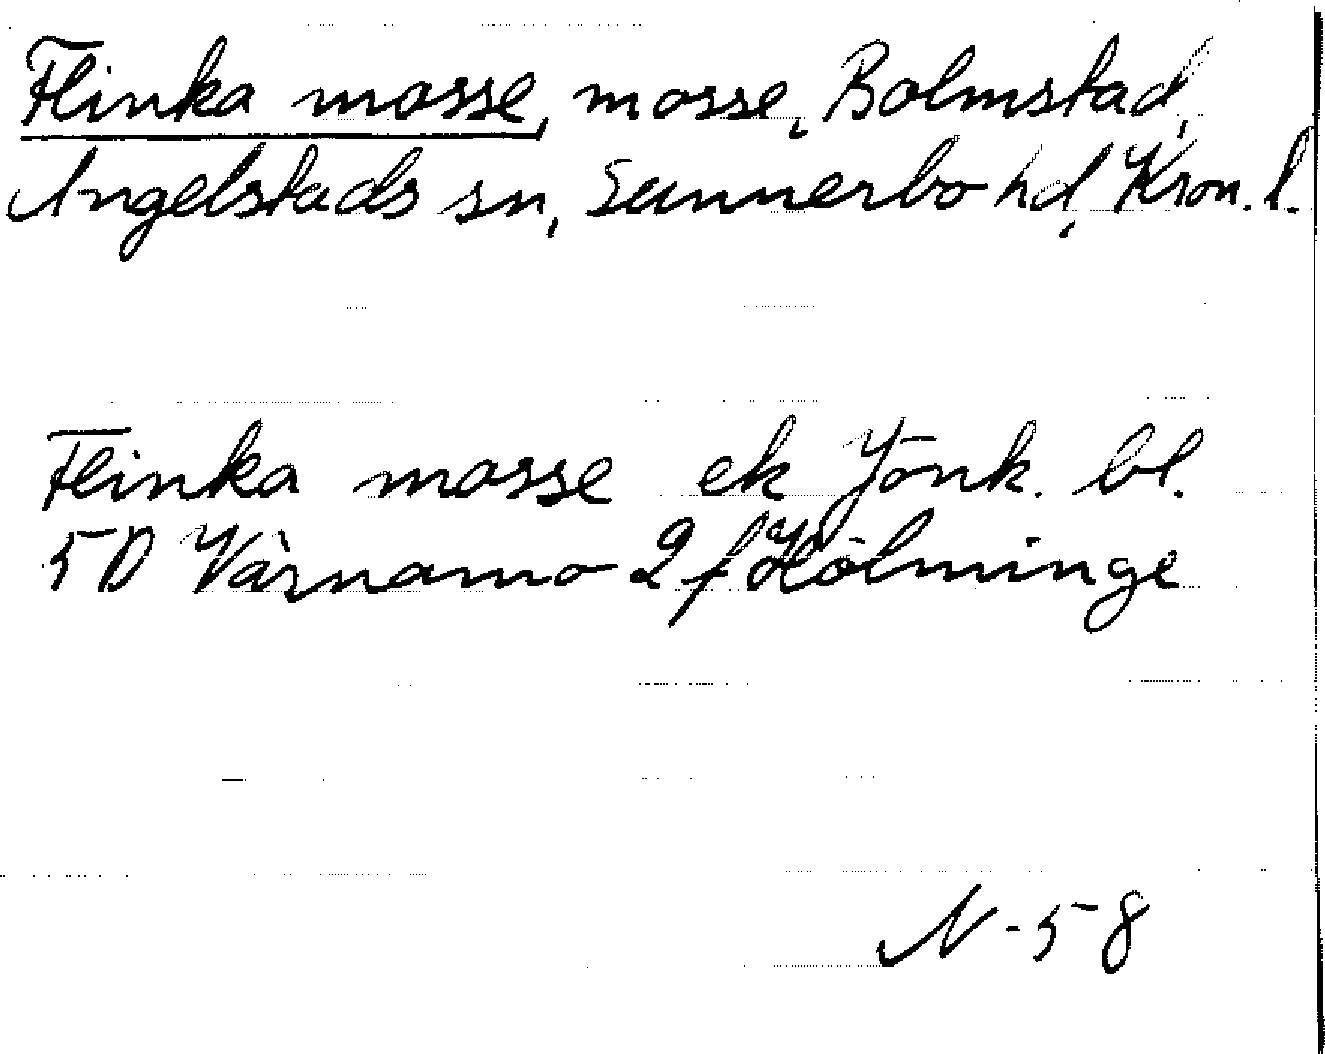 Flinka mosse, mosse, Bolmstad,
Angelstads sn, Sunnerbo hd, Kron. l.
Flinka mosse ek Jönk. bl.
5D Värnamo 2 f Hölminge
N-58